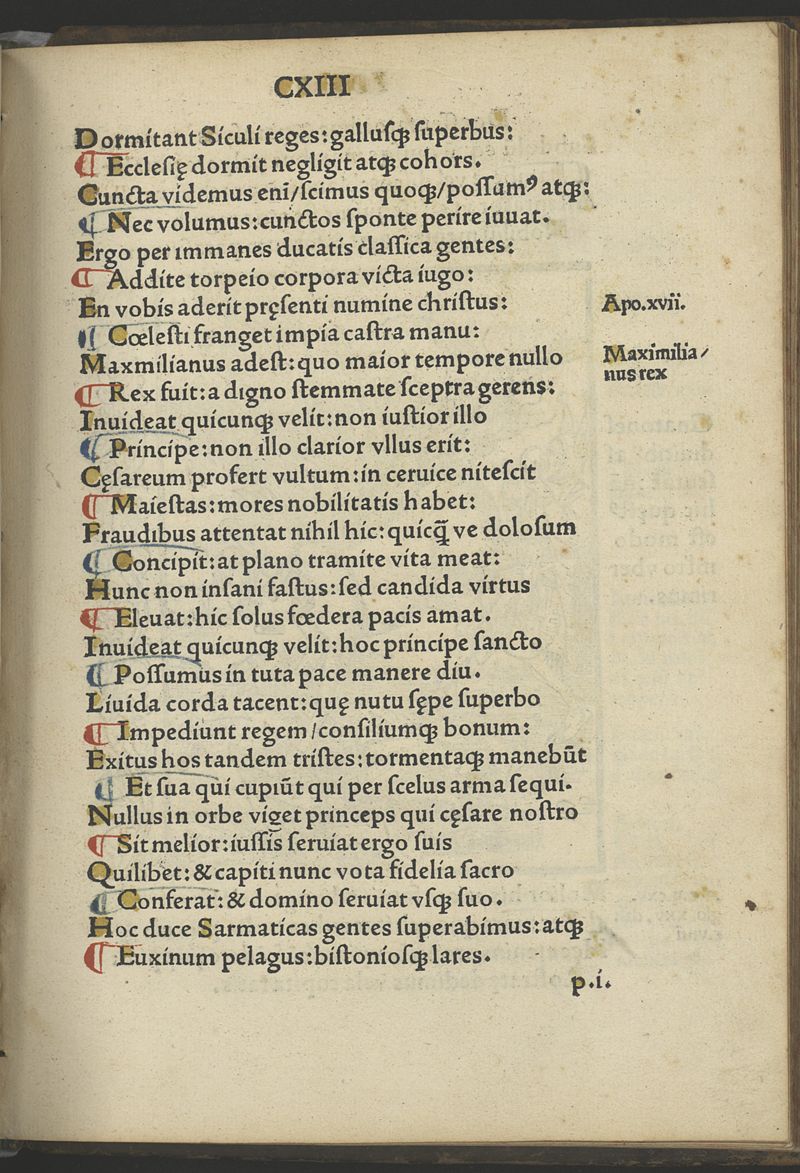 CXIII
Dormitant Siculi reges:galluſqꝫ ſuperbus:
¶ Eccleſię dormit negligit atqꝫ cohors.
Cuncta videmus eni̅/ſcimus quoqꝫ/poſſumꝰ atqꝫ:
¶ Nec volumus:cunctos ſponte perire iuuat.
Ergo per immanes ducatis claſſica gentes:
¶ Addite torpeio corpora victa iugo:
En vobis aderit pręſenti numine chriſtus:
Apo.xvii.
¶ Cœleſti franget impia caſtra manu:
Maxmilianus adeſt:quo maior tempore nullo
Maximilia/
nus rex
¶ Rex fuit:a digno ſtemmate ſceptra gerens:
Inuideat quicunqꝫ velit:non iuſtior illo
¶ Principe:non illo clarior vllus erit:
Cęſareum profert vultum:in ceruice niteſcit
¶ Maieſtas:mores nobilitatis habet:
Fraudibus attentat nihil hic:quicq̅ ve doloſum
¶ Concipit:at plano tramite vita meat:
Hunc non inſani faſtus:ſed candida virtus
¶ Eleuat:hic ſolus fœdera pacis amat.
Inuideat quicunqꝫ velit:hoc principe ſancto
¶ Poſſumus in tuta pace manere diu.
Liuida corda tacent:quę nutu ſępe ſuperbo
¶ Impediunt regem/conſiliumqꝫ bonum:
Exitus hos tandem triſtes:tormentaqꝫ manebūt
¶ Et ſua qui cupiūt qui per ſcelus arma ſequi.
Nullus in orbe viget princeps qui cęſare noſtro
¶ Sit melior:iuſſis ſeruiat ergo ſuis
Quilibet:& capiti nunc vota fidelia ſacro
¶ Conferat:& domino ſeruiat vſqꝫ ſuo.
Hoc duce Sarmaticas gentes ſuperabimus:atqꝫ
¶ Euxinum pelagus:biſtonioſqꝫ lares.
p.i.